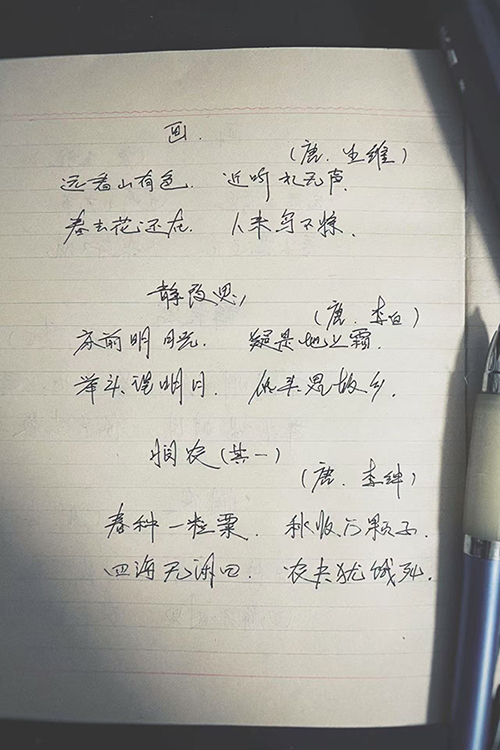 画.
(唐.王维)
远看山有色. 近听水无声.
春去花还在. 人来鸟不惊.
静夜思
(唐.李白)
床前明月光. 疑是地上霜.
举头望明月. 低头思故乡.
悯农(其一)
(唐.李绅)
春种一粒粟. 秋收万颗子.
四海无闲田. 农夫犹饿死.